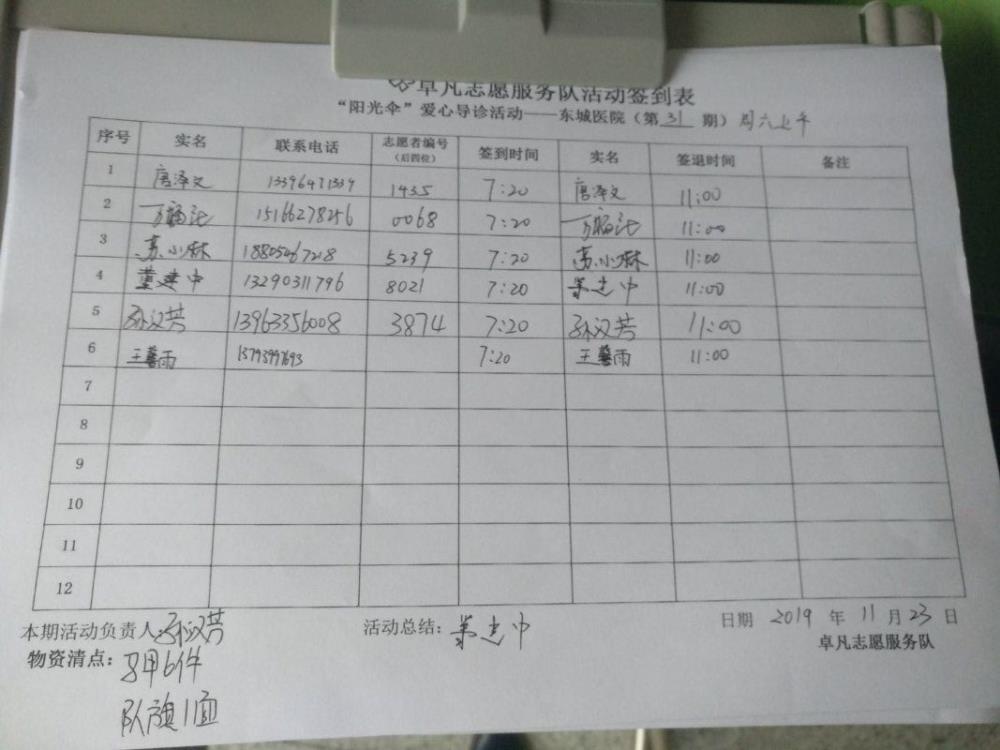 卓凡志愿服务队活动签到表
“阳光伞”爱心导诊活动——东城医院（第 31 期）周六上午
序号 实名 联系电话 志愿者编号（后四位） 签到时间 实名 签退时间 备注
1 唐泽文 13396471339 1435 7:20 唐泽文 11:00
2 15166278246 0068 7:20 11:00
3 苏小麻 18805467218 5239 7:20 苏小麻 11:00
4 董建中 13290311796 8021 7:20 董建中 11:00
5 孙汉芳 13963356008 3874 7:20 孙汉芳 11:00
6 王馨雨 7:20 王馨雨 11:00
7
8
9
10
11
12
本期活动负责人：孙汉芳 活动总结：董建中 日期 2019 年 11 月 23 日
物资清点：马甲6件 卓凡志愿服务队
队旗1面